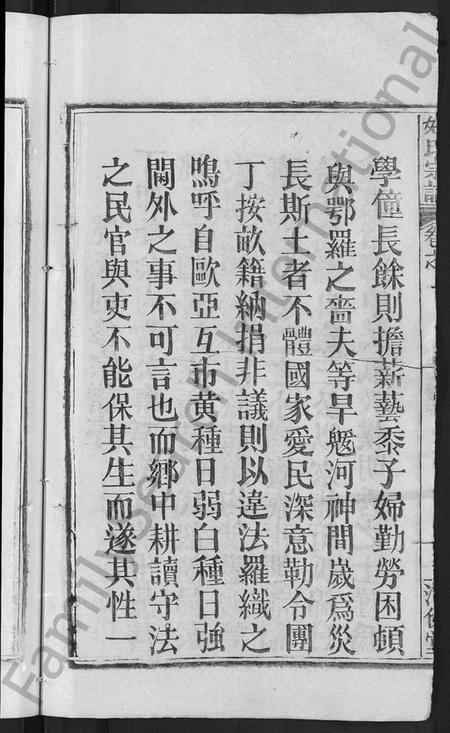 學僮長餘則擔薪藝黍子婦勤勞困頓
與鄂羅之嗇夫等旱魃河神間歲爲災
長斯土者不體國家愛民深意勒令團
丁按畝籍納捐非議則以違法羅織之
嗚呼自歐亞互市黄種日弱白種日強
閫外之事不可言也而鄉中耕讀守法
之民官與吏不能保其生而遂其性一
氏宗譜
卷之
FamilySearch International